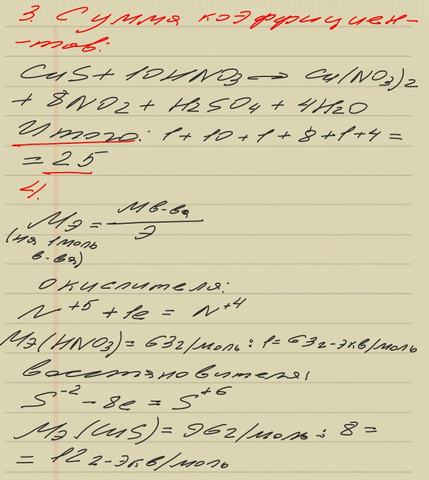 3. Сумма коэффициен-
-тов:
CuS + 10HNO3 = Cu(NO3)2
+ 8NO2 + H2SO4 + 4H2O
Итого: 1+10+1+8+1+4=
= 25
4.
Mэ = Mв-ва
Э
(на 1 моль
в-ва)
Окислителя:
N+5 + 1e = N+4
Mэ(HNO3) = 63г/моль : 1 = 63г-экв/моль
Восстановителя:
S-2 - 8e = S+6
Mэ(CuS) = 96г/моль : 8 =
= 12г-экв/моль